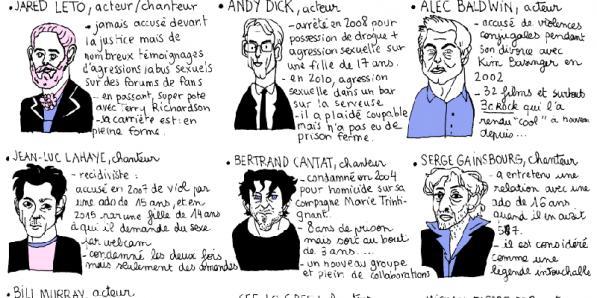 • JARED LETO, acteur/chanteur
- jamais accusé devant
la justice mais de
nombreux témoignages
d'agressions/abus sexuels
sur des forums de fans
- en passant, super pote
avec Terry Richardson
- sa carrière est: en
pleine forme.
• ANDY DICK, acteur
- arrêté en 2008 pour
possession de drogue +
agression sexuelle sur
une fille de 17 ans.
- en 2010, agression
sexuelle dans un bar
sur la serveuse
- il a plaidé coupable
mais n'a pas eu de
prison ferme.
• ALEC BALDWIN, acteur
- accusé de violences
conjugales pendant
son divorce avec
Kim Basinger en
2002
- 32 films et surtout
30 Rock qui l'a
rendu "cool" à nouveau
depuis...
• JEAN-LUC LAHAYE, chanteur
- recidiviste:
accusé en 2007 de viol par
une ado de 15 ans, et en
2015 par une fille de 14 ans
à qui il demande du sexe
par webcam
- condamné les deux fois
mais seulement des amendes
• BERTRAND CANTAT, chanteur
- condamné en 2004
pour homicide sur sa
compagne Marie Trinti-
gnant.
- 8 ans de prison
mais sort au bout
de 3 ans....
- un nouveau groupe
et plein de collaborations
• SERGE GAINSBOURG, chanteur
- a entretenu une
relation avec une
ado de 16 ans
quand il en avait
57.
- il est considéré
comme une
légende intouchable
• BILL MURRAY, acteur